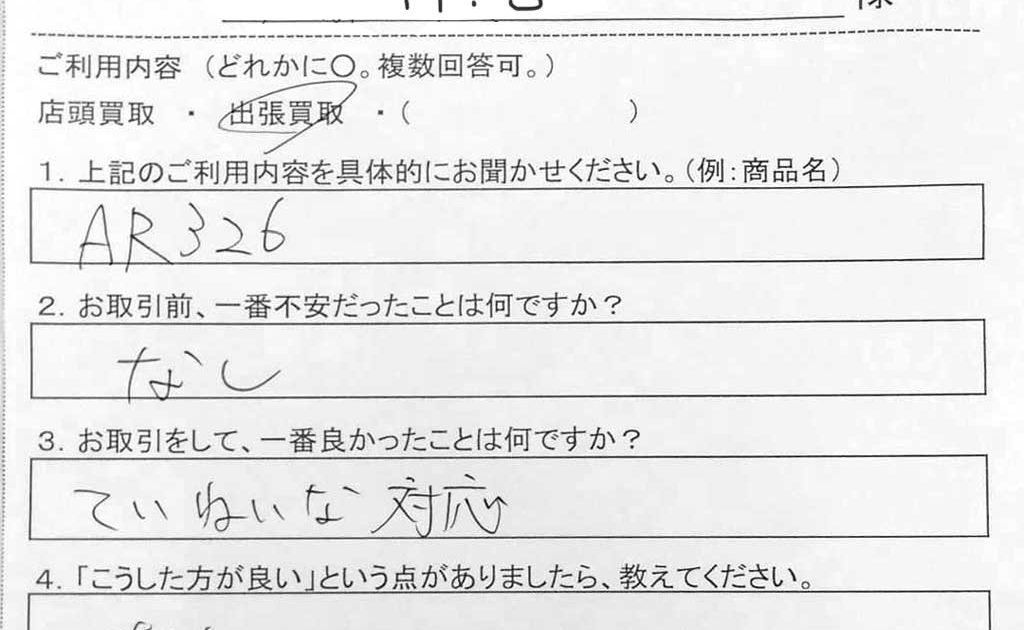 様
ご利用内容 (どれかに〇。複数回答可。)
店頭買取 ・ 出張買取 ・( )
1. 上記のご利用内容を具体的にお聞かせください。(例:商品名)
AR326
2. お取引前、一番不安だったことは何ですか?
なし
3. お取引をして、一番良かったことは何ですか?
ていねいな対応
4. 「こうした方が良い」という点がありましたら、教えてください。